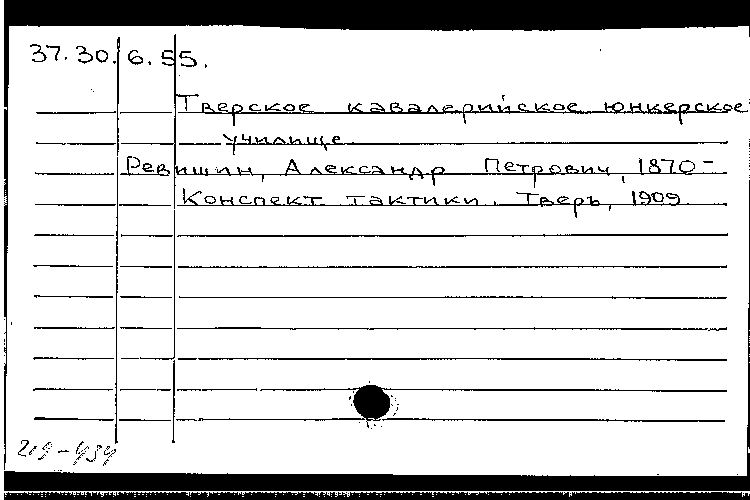 37.30.6.55.
Тверское кавалерийское юнкерское
училище
Ревишин, Александр Петрович, 1870-
Конспект тактики. Тверь, 1909.
219-434